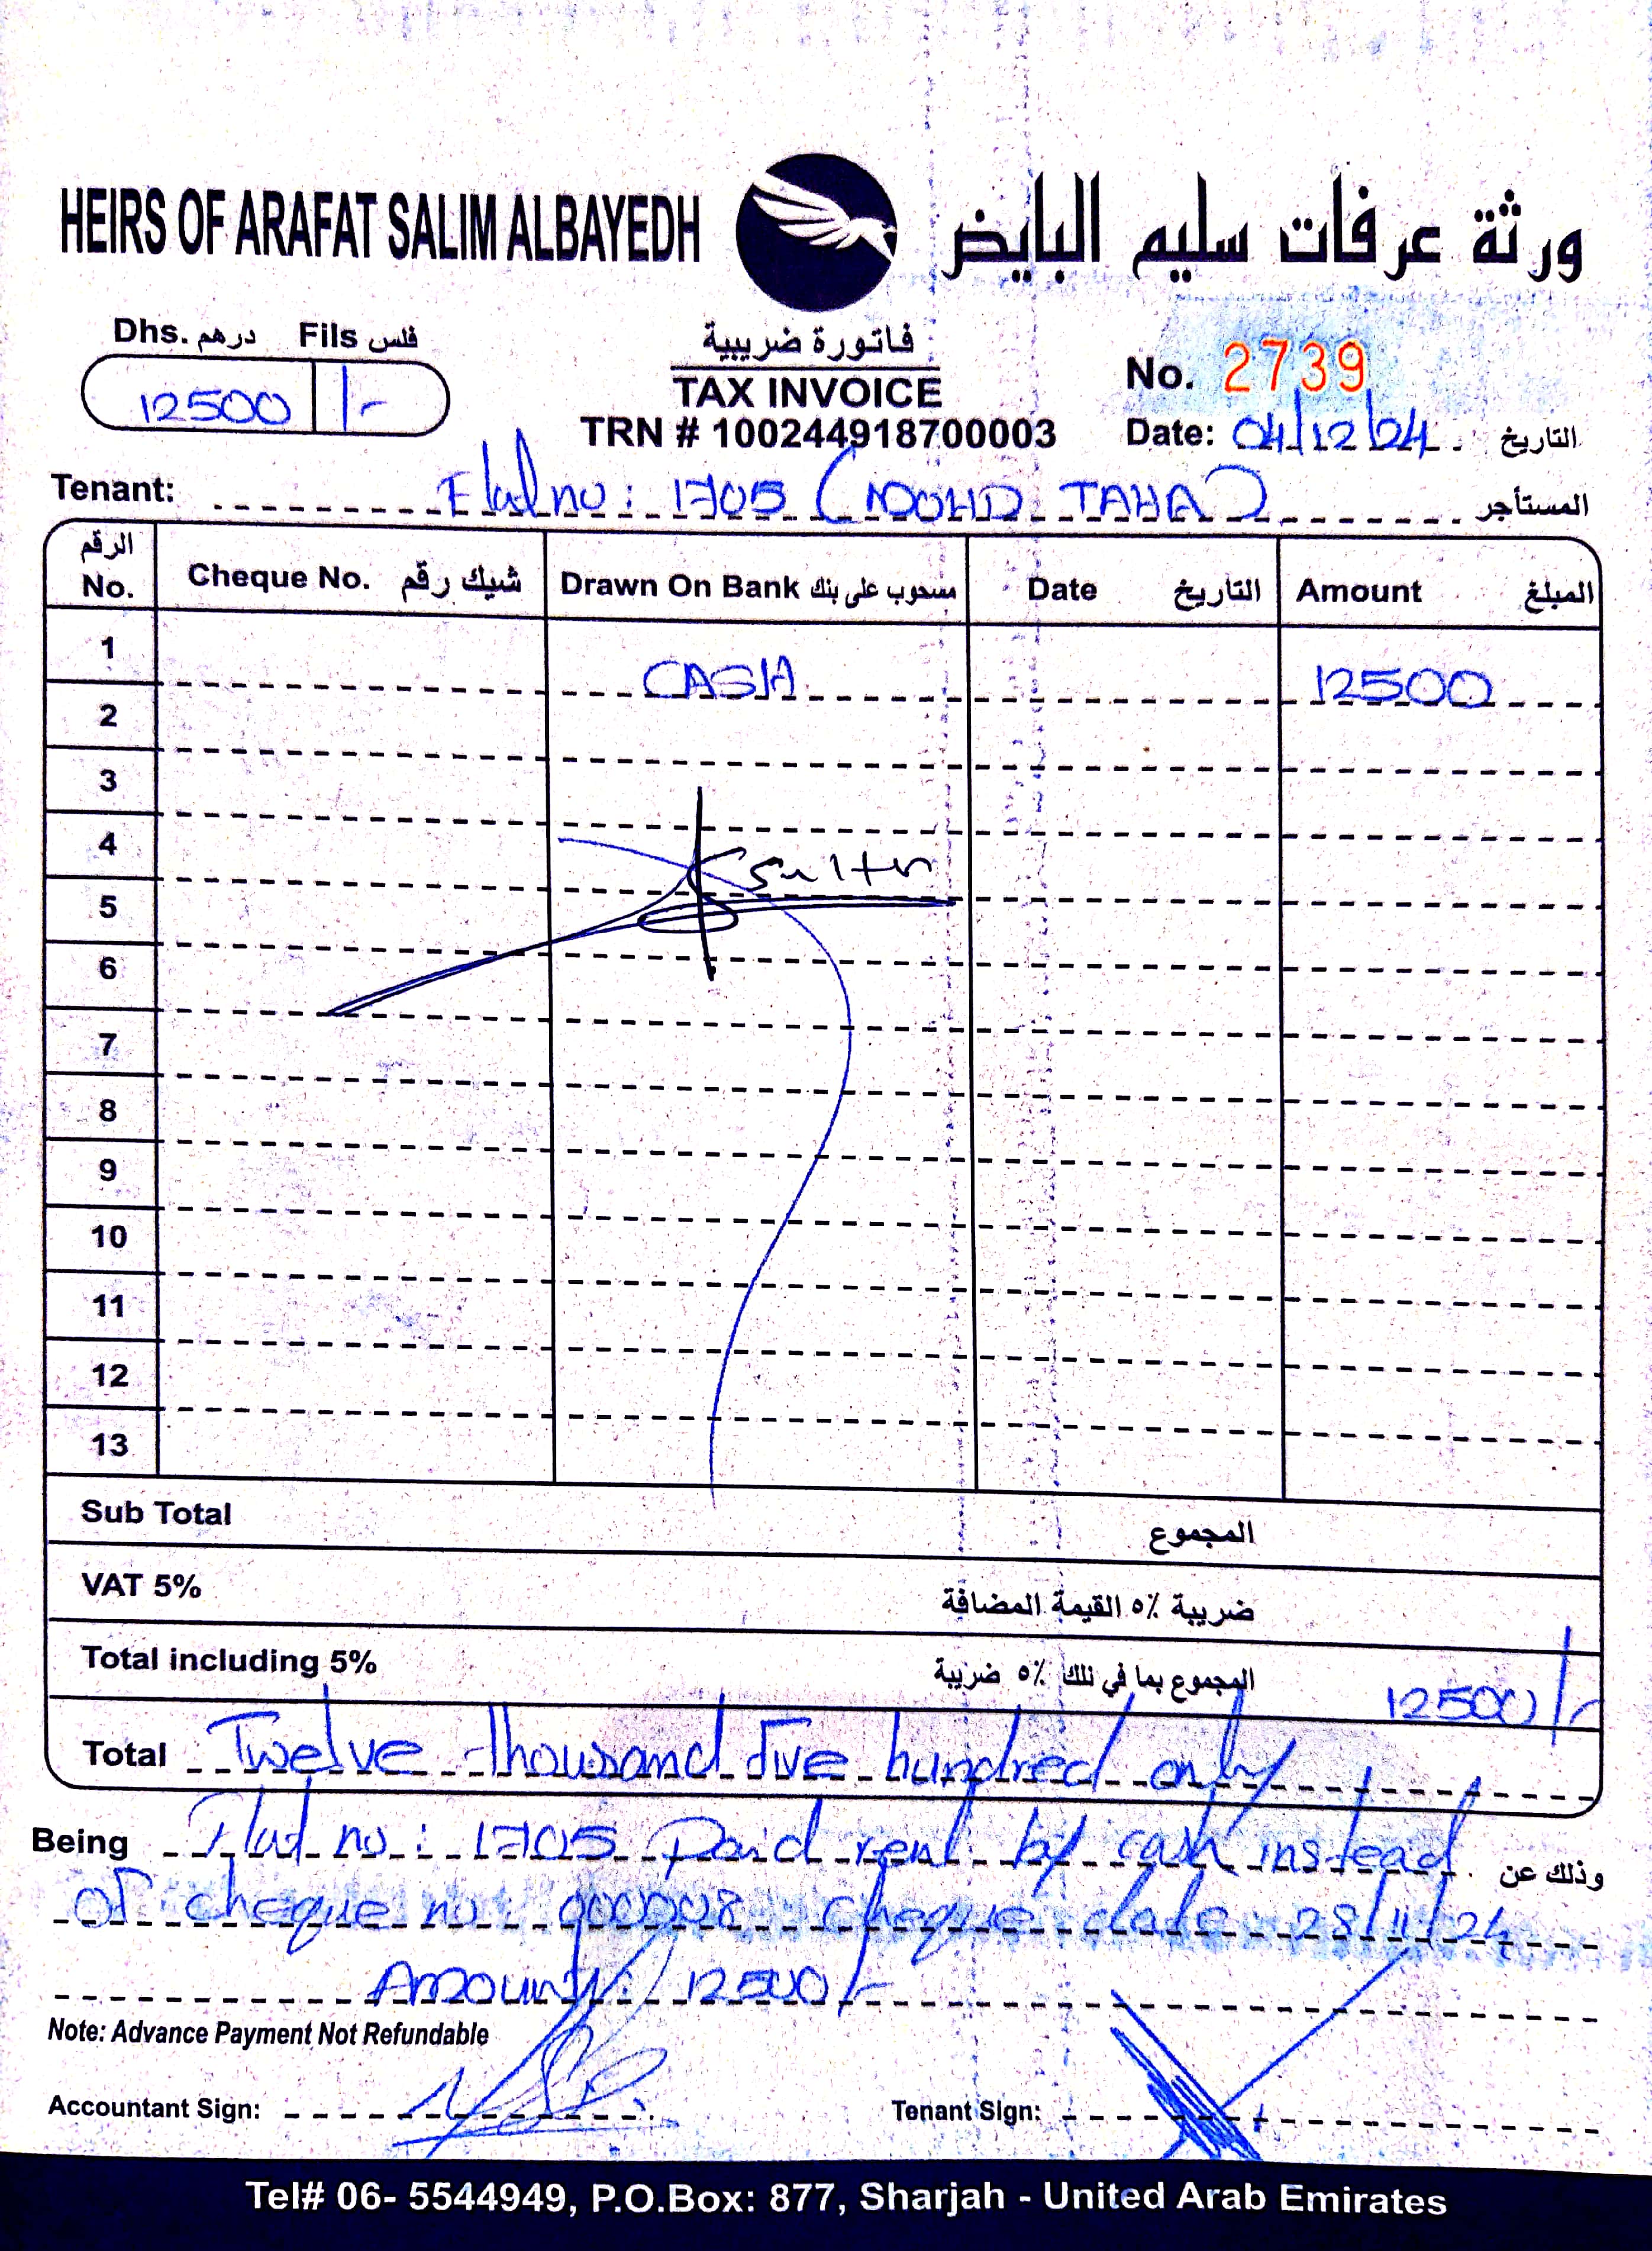 HEIRS OF ARAFAT SALIM ALBAYEDH ورثة عرفات سليم البايض
Dhs. درهم Fils فلس
12500 /-
فاتورة ضريبية
TAX INVOICE
TRN # 100244918700003
No. 2739
Date: 04/12/24 التاريخ
Tenant: Flat no : 1705 (MOHD TAHA) المستأجر
الرقم No. Cheque No. شيك رقم Drawn On Bank مسحوب على بنك Date التاريخ Amount المبلغ
1 CASH 12500
2
3
4
5
6
7
8
9
10
11
12
13
Sub Total المجموع
VAT 5% ضريبة ٥٪ القيمة المضافة
Total including 5% المجموع بما في ذلك ٥٪ ضريبة 12500/-
Total Twelve thousand five hundred only
Being Flat no : 1705 Paid rent by cash instead وذلك عن
of cheque no : 000008 cheque date 28/11/24
Amount : 12500/-
Note: Advance Payment Not Refundable
Accountant Sign: Tenant Sign:
Tel# 06- 5544949, P.O.Box: 877, Sharjah - United Arab Emirates